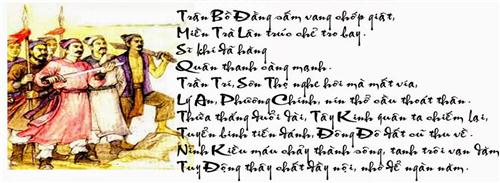 Trận Bồ Đằng sấm vang chớp giật,
Miền Trà Lân trúc chẻ tro bay.
Sĩ khí đã hăng
Quân thanh càng mạnh.
Trần Trí, Sơn Thọ nghe hơi mà mất vía,
Lý An, Phương Chính, nín thở cầu thoát thân.
Thừa thắng đuổi dài, Tây Kinh quân ta chiếm lại,
Tuyển binh tiến đánh, Đông Đô đất cũ thu về.
Ninh Kiều máu chảy thành sông, tanh trôi vạn dặm
Tuỵ Động thây chất đầy nội, nhơ để ngàn năm.